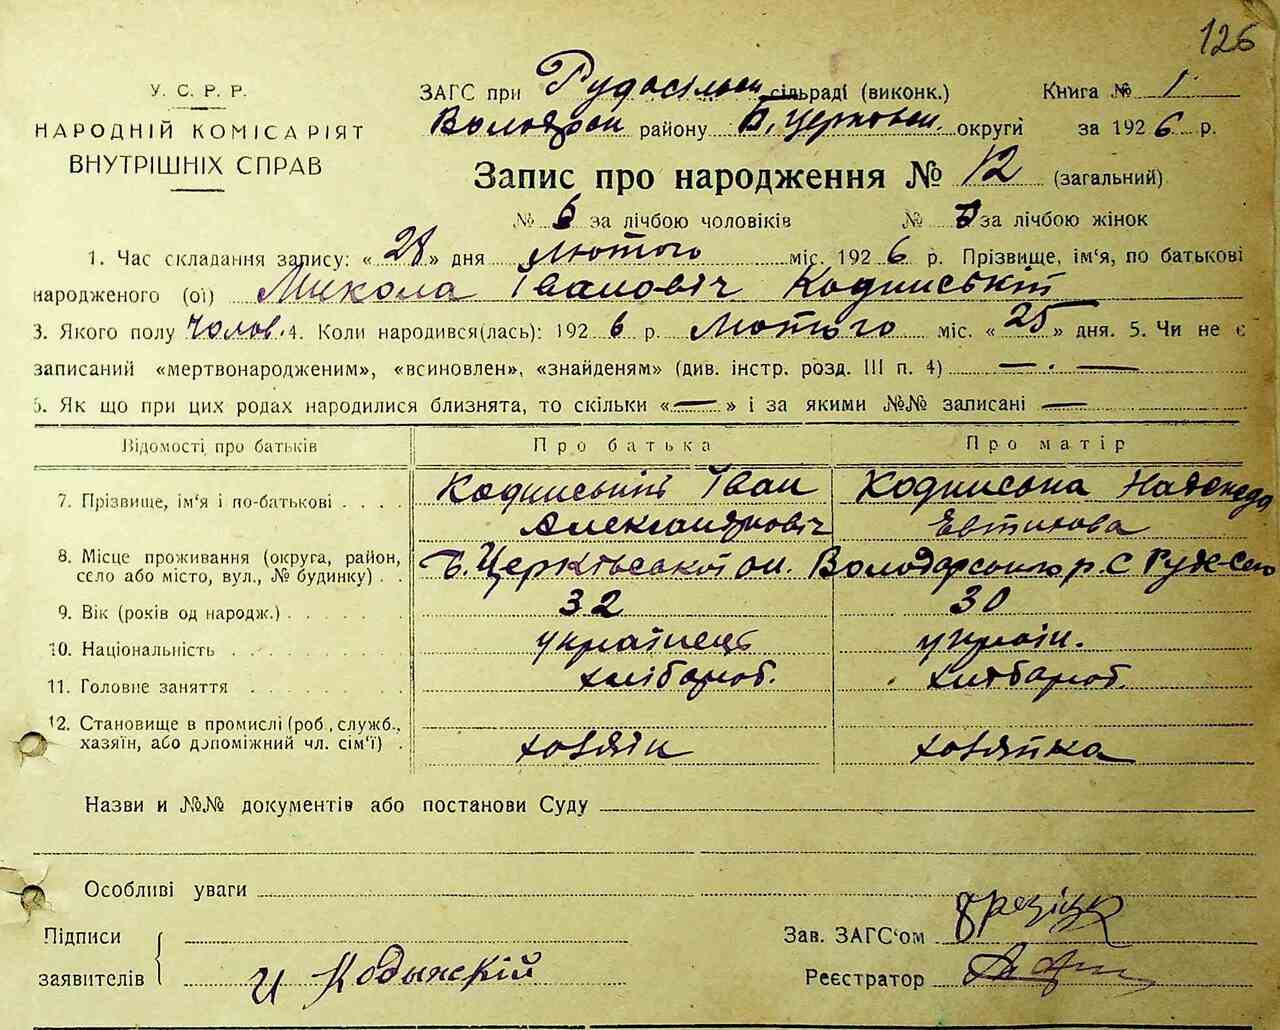 126
У. С. Р. Р.
НАРОДНІЙ КОМІСАРІЯТ
ВНУТРІШНІХ СПРАВ
ЗАГС при Рудосільск сільраді (виконк.) Книга № 1
району Б. Церковск. округи за 1926 р.
Запис про народження № 12 (загальний)
№ 6 за лічбою чоловіків № за лічбою жінок
1. Час складання запису: «28» дня лютого міс. 1926 р. Прізвище, ім'я, по батькові
народженого (ої) Микола Івановіч Кодинській
3. Якого полу Чолов. 4. Коли народився(лась): 1926 р. лютого міс. «25» дня. 5. Чи не є
записаний «мертвонародженим», «всиновлен», «знайденям» (див. інстр. розд. III п. 4) — . —
6. Як що при цих родах народилися близнята, то скільки «—» і за якими №№ записані —
Відомості про батьків Про батька Про матір
7. Прізвище, ім'я і по-батькові . . . . Кодинській Іван Кодинська
Александровіч Евтихова
8. Місце проживання (округа, район,
село або місто, вул., № будинку) . . Б. Церківськоі ок. Володарського р. С Руде-Село
9. Вік (років од народж.) 32 30
10. Національність українець україн.
11. Головне заняття хлібороб. хлібороб.
12. Становище в промислі (роб., служб.,
хазяїн, або допоміжний чл. сім'ї) . хозяін хозяйка
Назви и №№ документів або постанови Суду
Особливі уваги
Підписи
заявителів И Кодынскій
Зав. ЗАГС'ом
Реєстратор